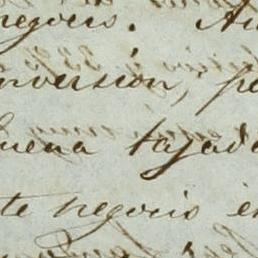 negocis. Au
nversion, pe
buena tajada
te negocio en